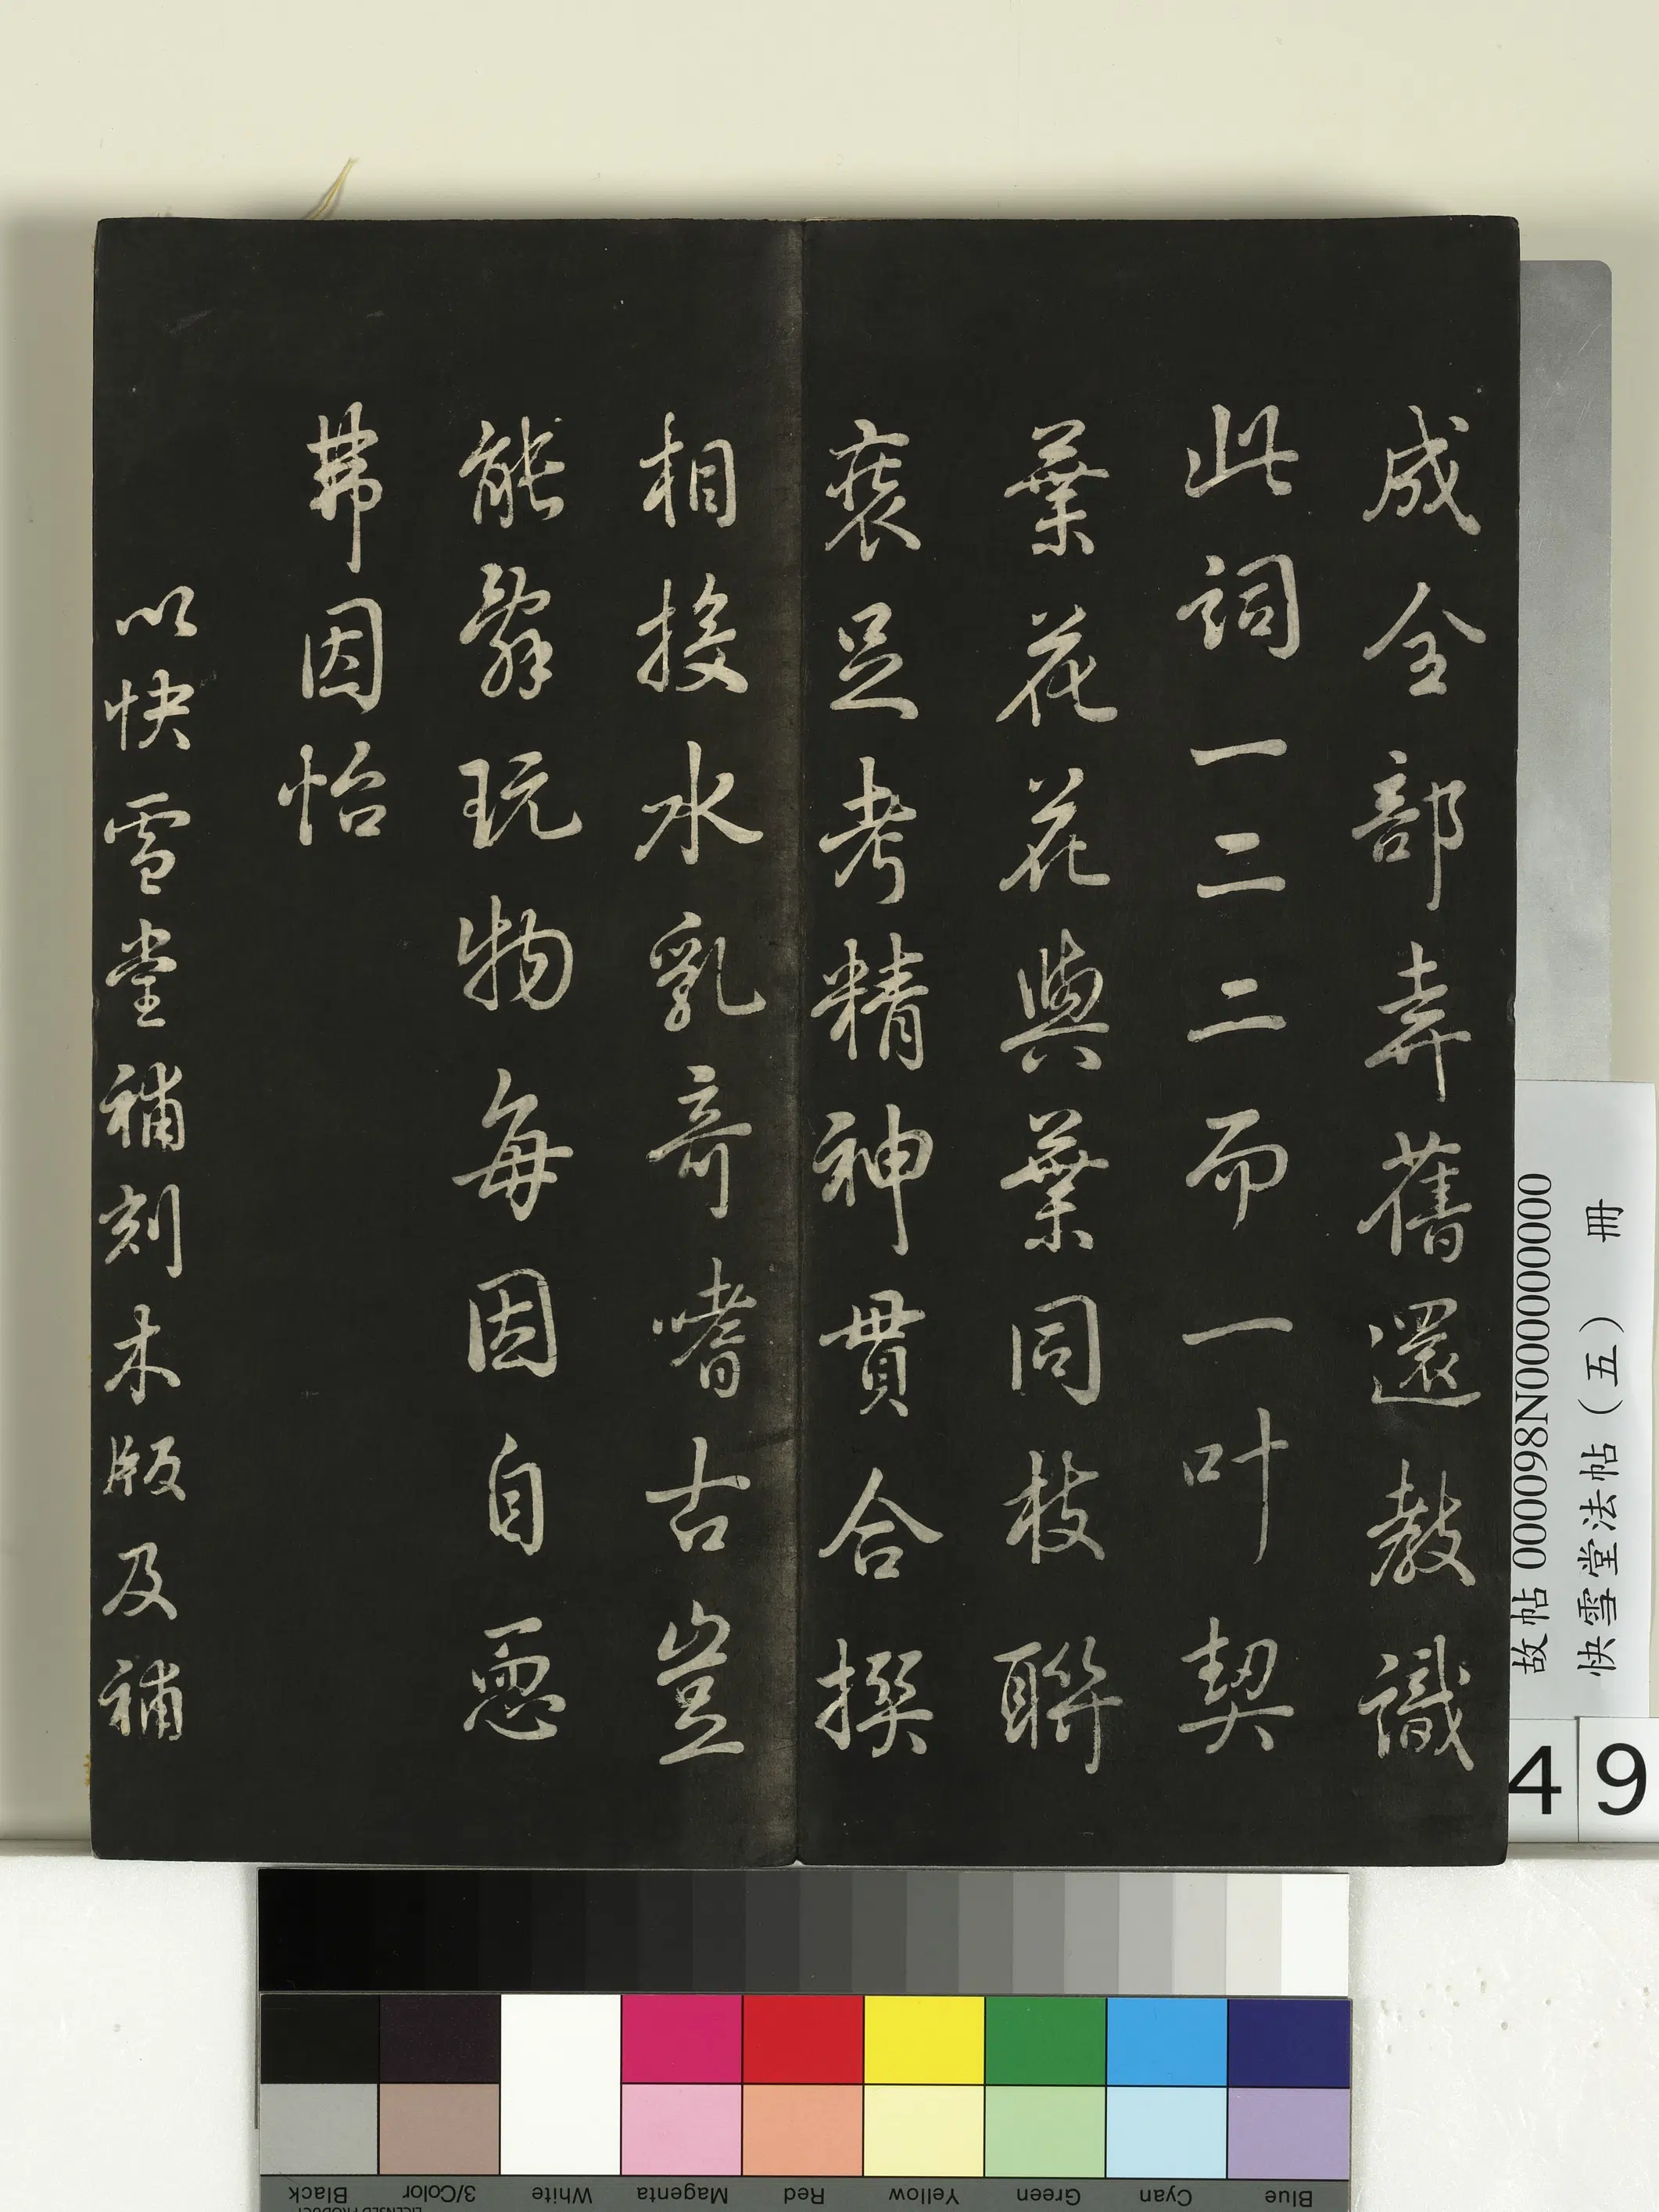 成全部幸舊還教識
此詞一二二而一叶契
葉花花與葉同枝聯
裘足考精神貫合撰
相接水乳奇嗜古豈
能辭玩物每因自惡
茀因怡
以快雪堂補刻木版及補
故帖 000098N000000000
快雪堂法帖（五） 冊
49
Black
3/Color
White
Magenta
Red
Yellow
Green
Cyan
Blue